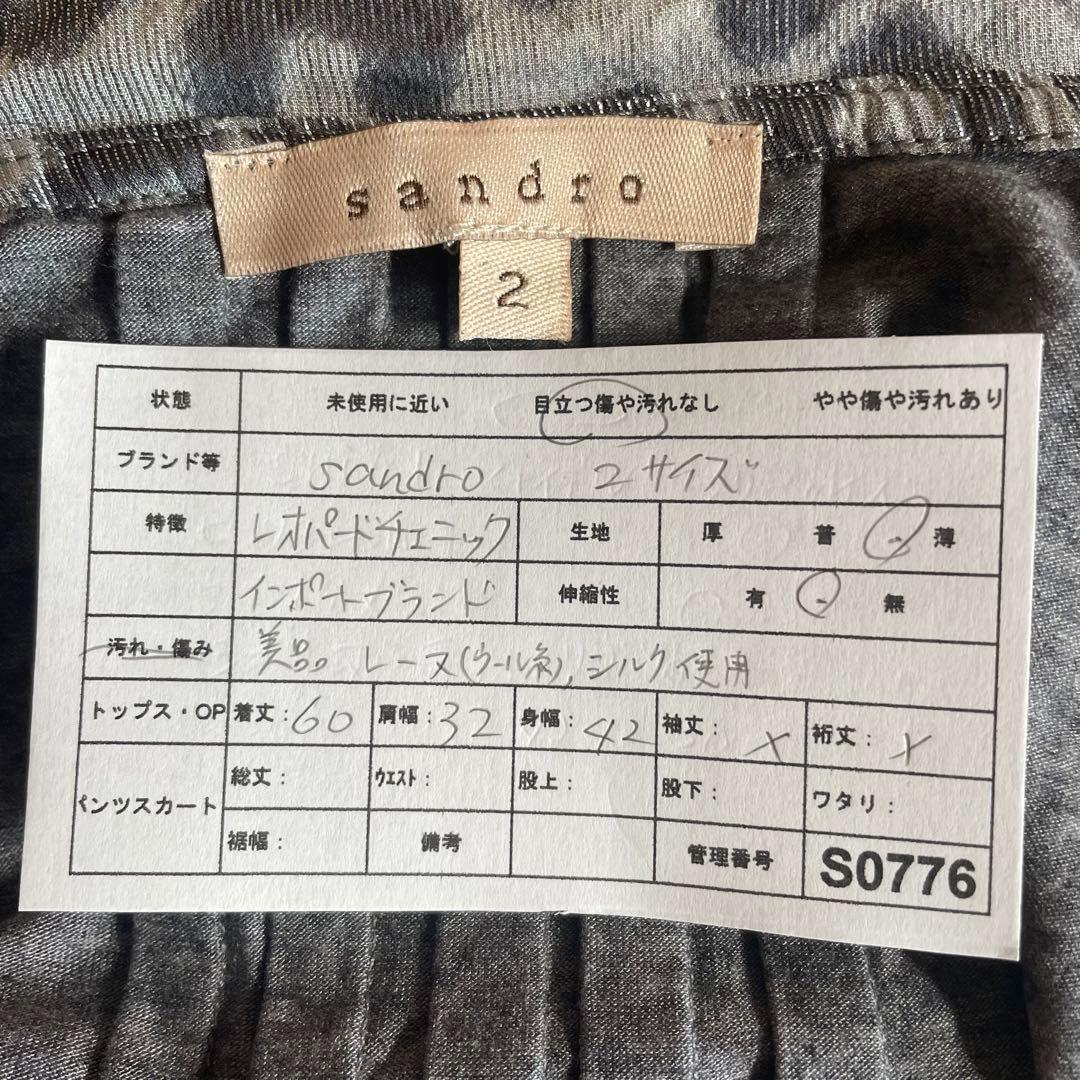 sandro
2
状態 未使用に近い 目立つ傷や汚れなし やや傷や汚れあり
ブランド等 sandro 2サイズ
特徴 レオパードチュニック 生地 厚 普 ・ 薄
インポートブランド 伸縮性 有 ・ 無
汚れ・傷み 美品。 レース(ウール系), シルク使用
トップス・OP 着丈:60 肩幅:32 身幅:42 袖丈: × 裄丈: ×
パンツスカート 総丈: ウエスト: 股上: 股下: ワタリ:
裾幅: 備考 管理番号 S0776